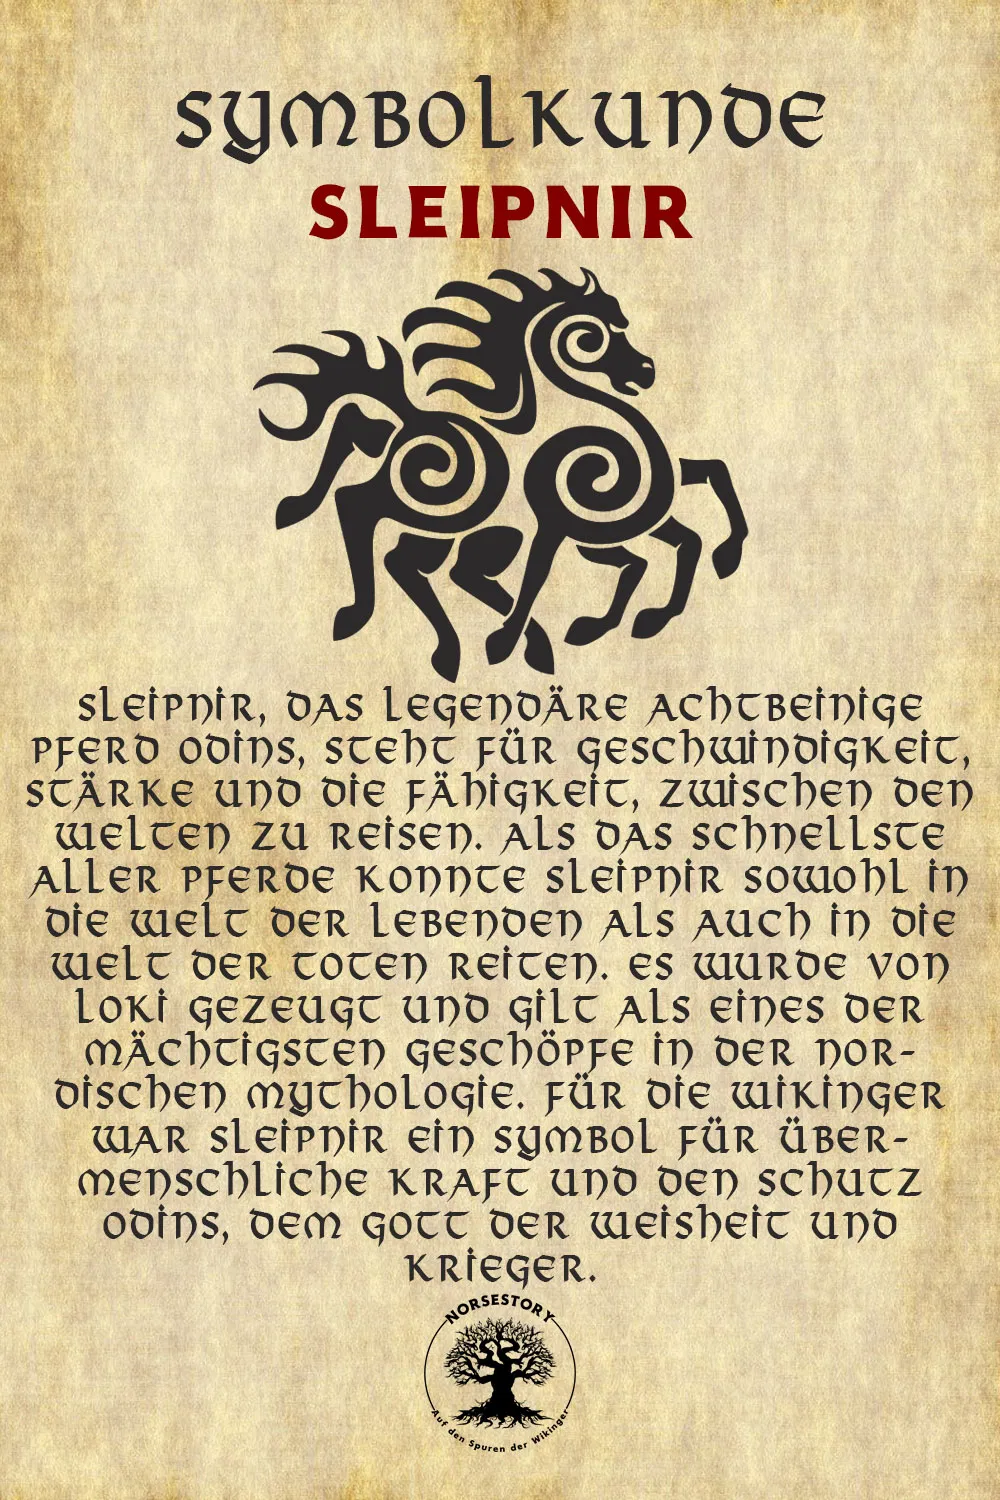 SYMBOLKUNDE
SLEIPNIR
SLEIPNIR, DAS LEGENDÄRE ACHTBEINIGE
PFERD ODINS, STEHT FÜR GESCHWINDIGKEIT,
STÄRKE UND DIE FÄHIGKEIT, ZWISCHEN DEN
WELTEN ZU REISEN. ALS DAS SCHNELLSTE
ALLER PFERDE KONNTE SLEIPNIR SOWOHL IN
DIE WELT DER LEBENDEN ALS AUCH IN DIE
WELT DER TOTEN REITEN. ES WURDE VON
LOKI GEZEUGT UND GILT ALS EINES DER
MÄCHTIGSTEN GESCHÖPFE IN DER NOR-
DISCHEN MYTHOLOGIE. FÜR DIE WIKINGER
WAR SLEIPNIR EIN SYMBOL FÜR ÜBER-
MENSCHLICHE KRAFT UND DEN SCHUTZ
ODINS, DEM GOTT DER WEISHEIT UND
KRIEGER.
NORSESTORY
Auf den Spuren der Wikinger